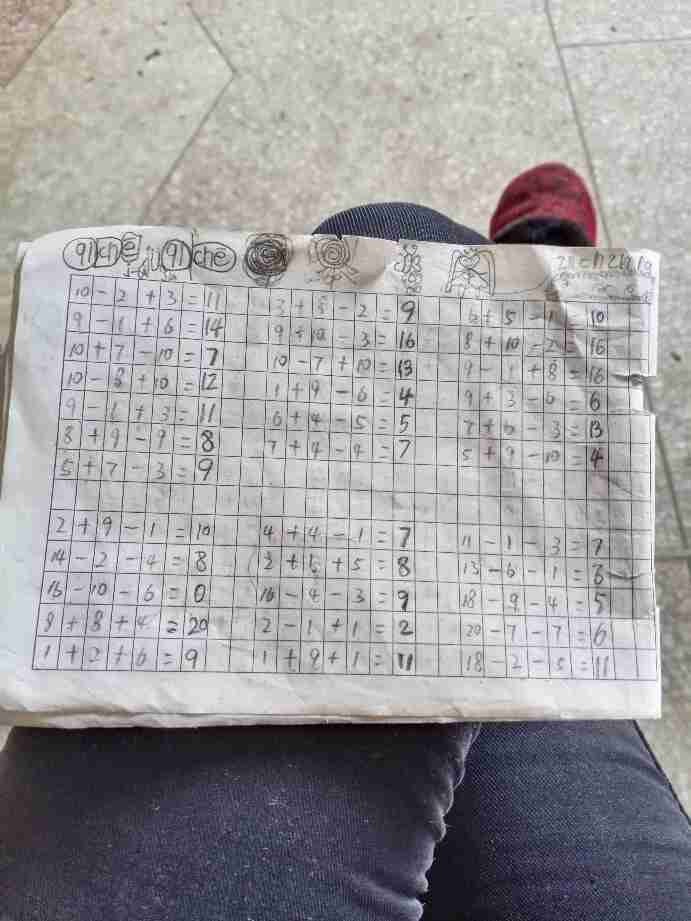 qi che qi che
10 - 2 + 3 = 11 3 + 8 - 2 = 9 6 + 5 - 1 = 10
9 - 1 + 6 = 14 9 + 10 - 3 = 16 8 + 10 - 2 = 16
10 + 7 - 10 = 7 10 - 7 + 10 = 13 9 - 1 + 8 = 16
10 - 8 + 10 = 12 1 + 9 - 6 = 4 9 + 3 - 6 = 6
9 - 1 + 3 = 11 6 + 4 - 5 = 5 7 + 6 - 3 = 13
8 + 9 - 9 = 8 7 + 4 - 4 = 7 5 + 9 - 10 = 4
5 + 7 - 3 = 9
2 + 9 - 1 = 10 4 + 4 - 1 = 7 11 - 1 - 3 = 7
14 - 2 - 4 = 8 2 + 1 + 5 = 8 = 8
16 - 10 - 6 = 0 16 - 4 - 3 = 9 18 - 9 - 4 = 5
8 + 8 + 4 = 20 2 - 1 + 1 = 2 20 - 7 - 7 = 6
1 + 2 + 6 = 9 1 + 9 + 1 = 11 18 - 2 - 5 = 11